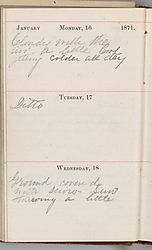 January Monday, 16 1871.
Cloudy with the
sun a little cool
getting colder all day
Tuesday, 17
Ditto
Wednesday, 18
Ground covered
with snow sun
showing a little